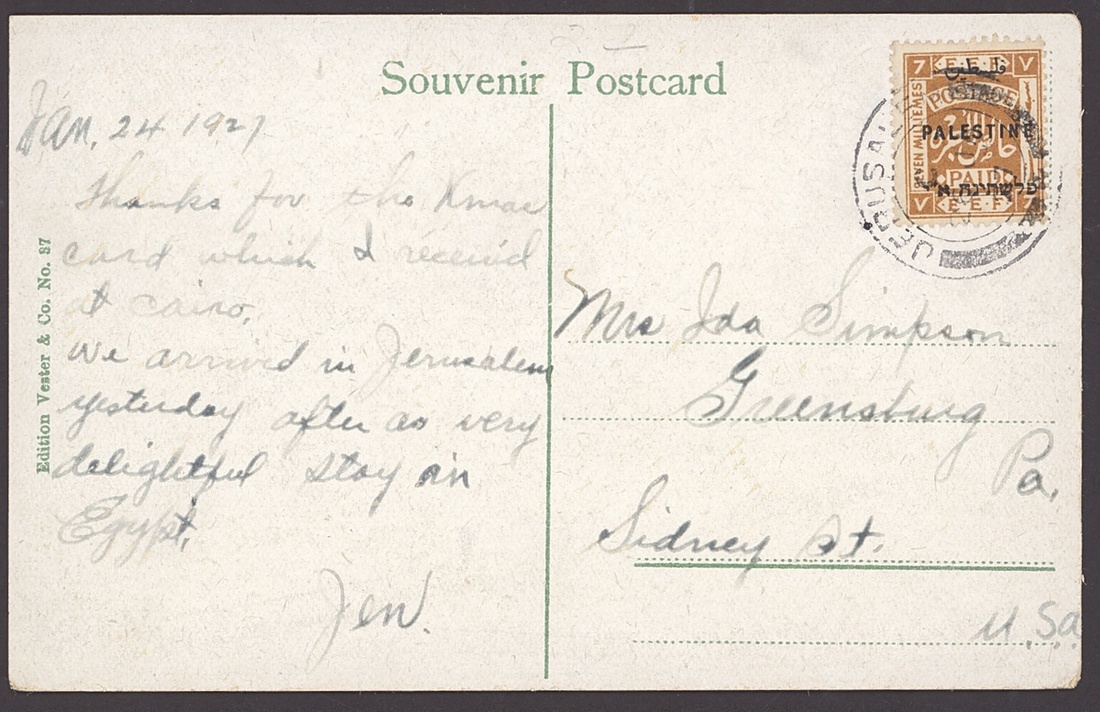 Souvenir Postcard
Jan. 24 1927
Thanks for the Xmas
card which I receiv'd
at Cairo.
We arrived in Jerusalem
yesterday after a very
delightful stay in
Egypt.
Jen.
Edition Vester & Co. No. 87
7 E.E.F. ٧
POSTAGE
SEVEN MILLIEMES
PALESTINE
PAID
פלשתינה א״י
٧ E.E.F. 7
JERUSALEM
Mrs Ida Simpson
Greensburg
Pa.
Sidney St.
U.S.a